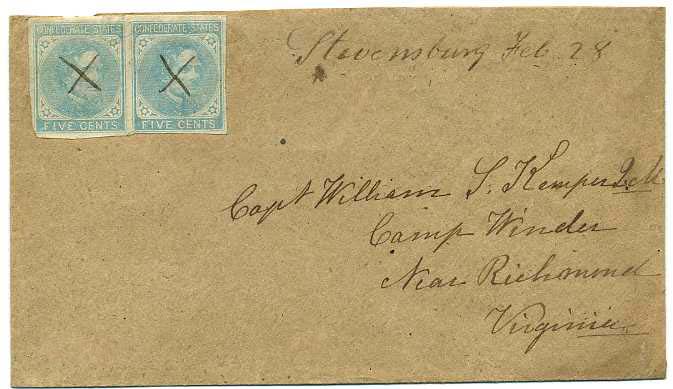 CONFEDERATE STATES
FIVE CENTS
CONFEDERATE STATES
FIVE CENTS
Stevensburg Feb 28
Capt William S. Kemper Q.M.
Camp Winder
Near Richmond
Virginia